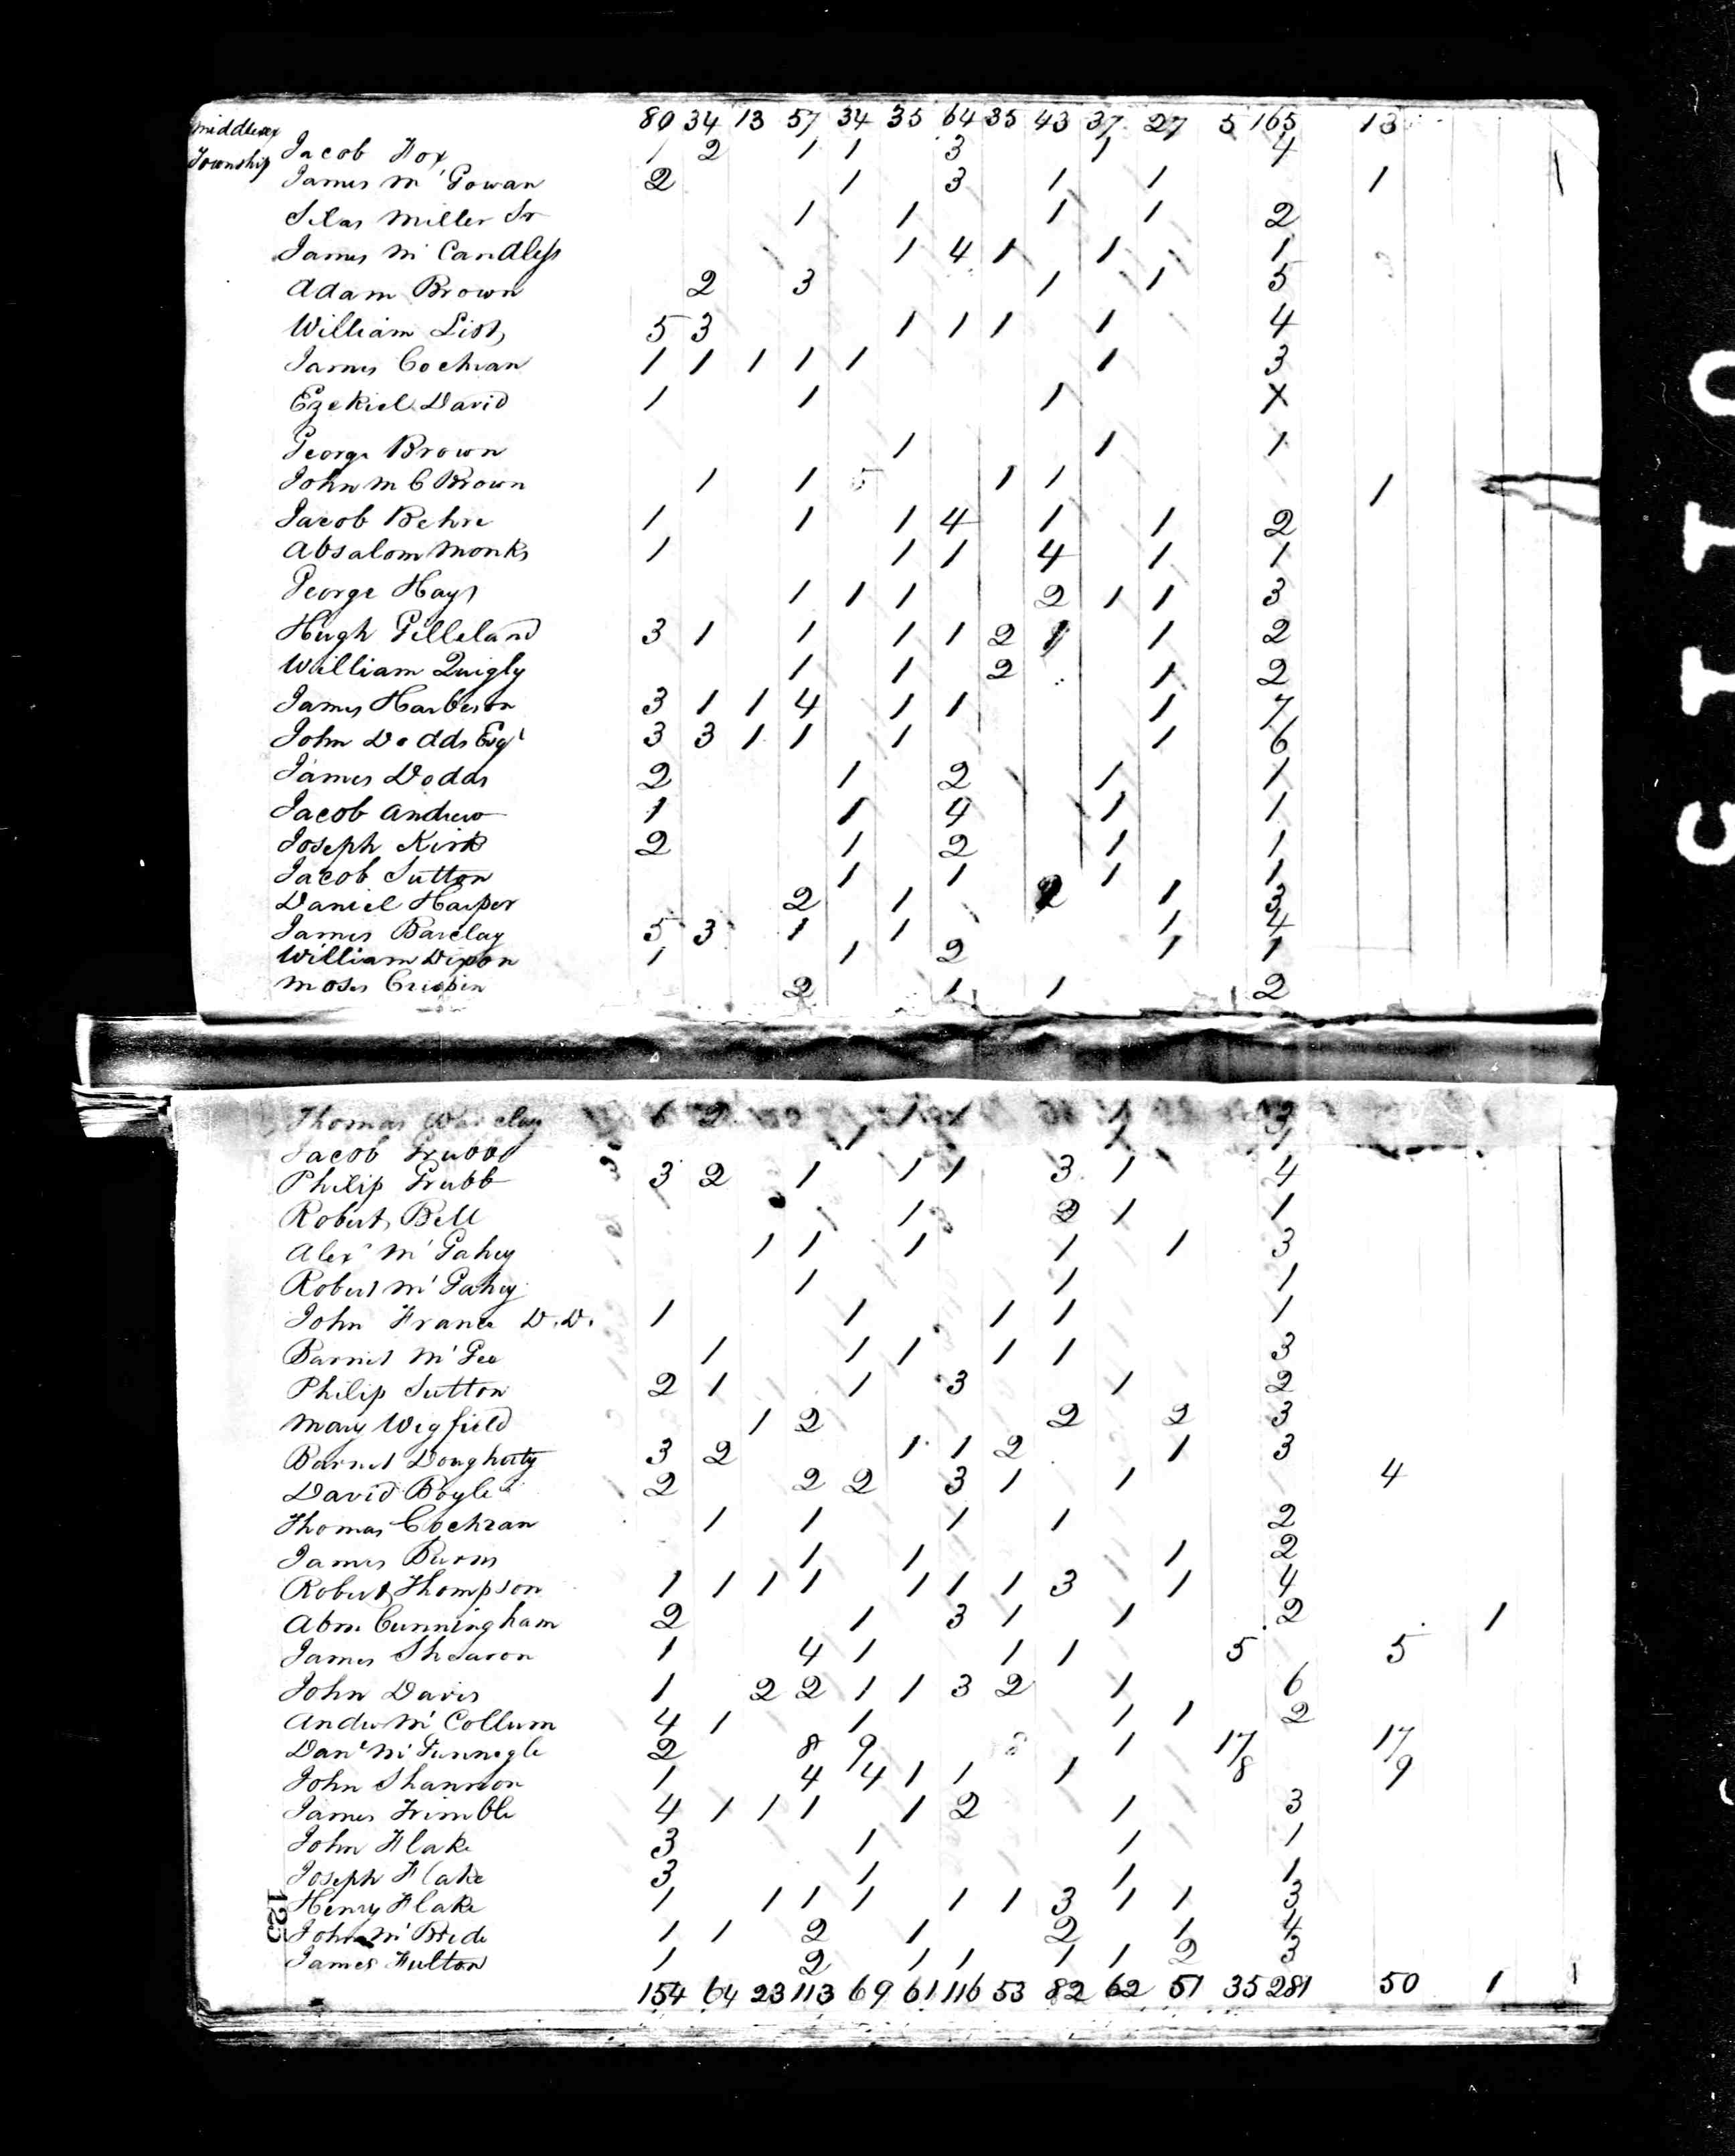 Middlesex 80 34 13 57 34 35 64 35 43 37 27 5 165 13
Township Jacob Fox 1 2 1 1 3 1 4
James Mc Gowan 2 1 3 1 1 1
Silas Miller Sr 1 1 1 1 2
James Mc Candless 1 4 1 1 1
Adam Brown 2 3 1 1 5
William List 5 3 1 1 1 1 4
James Cochran 1 1 1 1 1 1 3
Ezekiel David 1 1 1 X
George Brown 1 1 1
John Mc Brown 1 1 5 1 1 1
Jacob Behre 1 1 1 4 1 1 2
Absalom Monks 1 1 1 4 1 1
George Hays 1 1 1 2 1 1 3
Hugh Gilleland 3 1 1 1 1 2 1 1 2
William Quigly 1 1 2 1 2
James Harbeson 3 1 1 4 1 1 1 7
John Dodds Esqr 3 3 1 1 1 1 6
James Dodds 2 1 2 1 1
Jacob Andrew 1 1 4 1 1
Joseph Kirk 2 1 2 1 1
Jacob Sutton 1 1 1 1
Daniel Harper 2 1 2 1 3
James Barclay 5 3 1 1 1 4
William Dixon 1 1 2 1 1
Moses Crispin 2 1 1 2
Thomas 2 1 1 1 3
Jacob Grubb 1 1 1
Philip Grubb 3 2 1 1 1 3 1 4
Robert Bell 1 2 1 1
Alexr Mc Gahey 1 1 1 1 1 3
Robert Mc Gahey 1 1 1
John France D.D. 1 1 1 1 1
Barnet Mc Gee 1 1 1 1 1 3
Philip Sutton 2 1 1 3 1 2
Mary Wigfield 1 2 2 2 3
Barnet Dougherty 3 2 1 1 2 1 3
David Boyle 2 2 2 3 1 1 4
Thomas Cochran 1 1 1 1 2
James Burns 1 1 1 2
Robert Thompson 1 1 1 1 1 1 1 3 1 4
Abm Cunningham 2 1 3 1 1 2 1
James Shearon 1 4 1 1 1 5 5
John Davis 1 2 2 1 1 3 2 1 6
Andw Mc Collum 4 1 1 1 1 2
Danl Mc Gunnegle 2 8 9 1 17 17
John Shannon 1 4 4 1 1 1 8 9
James Trimble 4 1 1 1 1 2 1 3
John Flake 3 1 1 1
Joseph Flake 3 1 1 1
Henry Flake 1 1 1 1 1 1 3 1 1 3
John Mc Bride 1 1 2 1 2 1 4
James Fulton 1 2 1 1 1 1 2 3
154 64 23 113 69 61 116 53 82 62 51 35 281 50 1 1
125